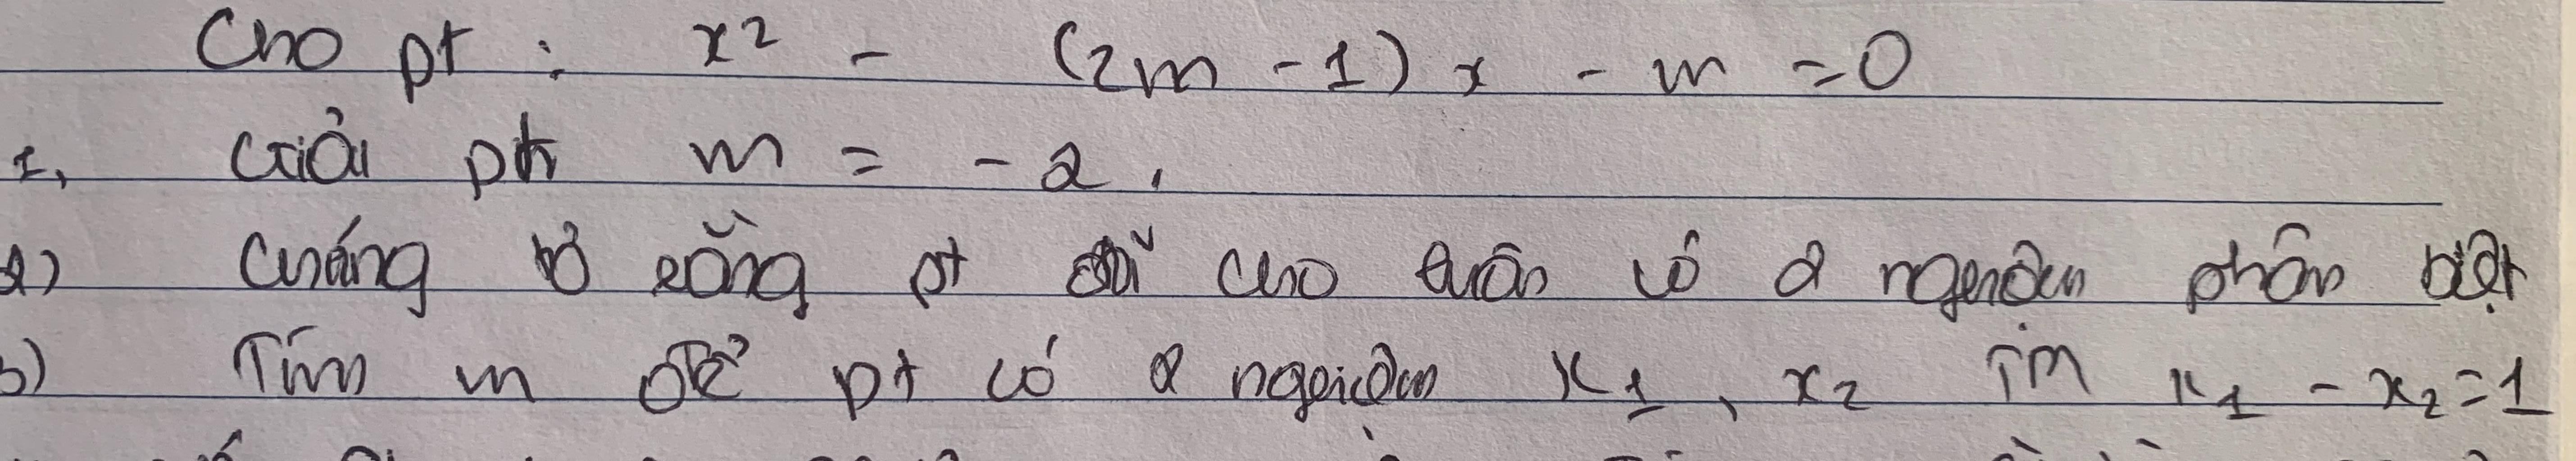 Cho pt : x² - (2m - 1) x - m = 0
1, Giải pt m = -2.
2) Chứng tỏ rằng pt đã cho luôn có 2 nghiệm phân biệt
3) Tìm m để pt có 2 nghiệm x₁, x₂ TM x₁ - x₂ = 1